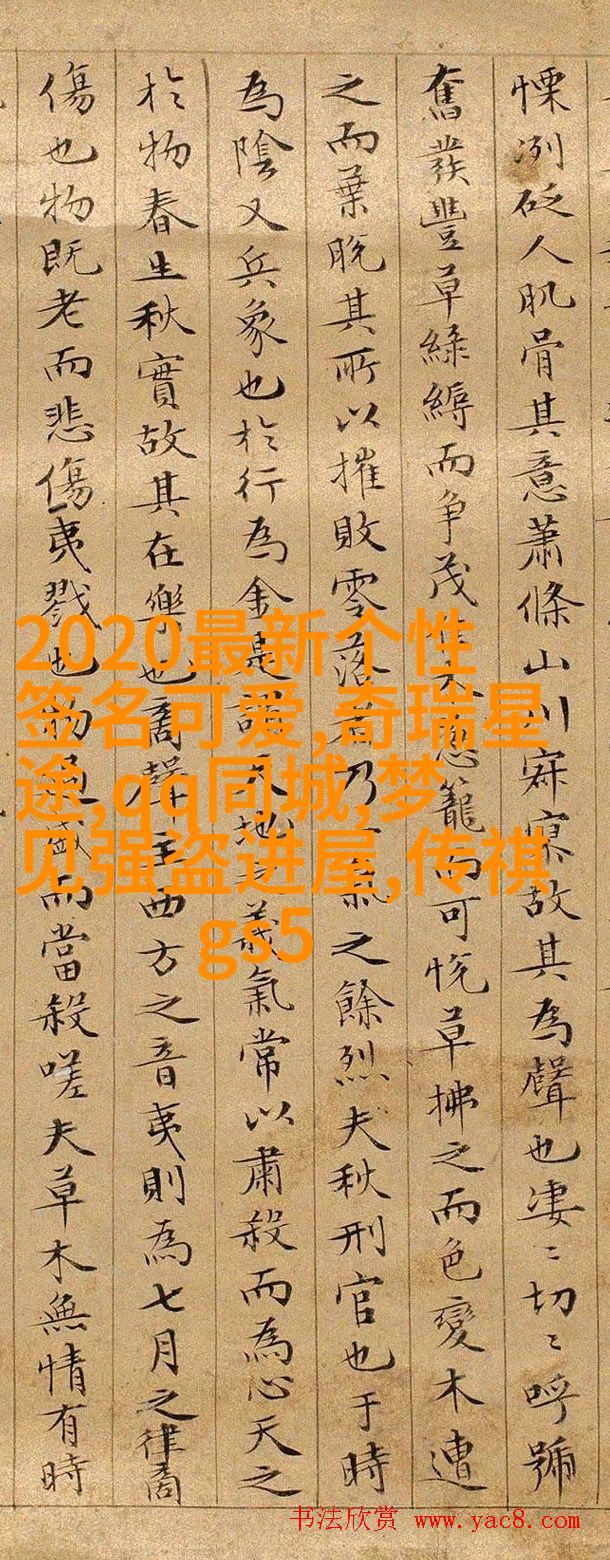 慄冽砭人肌骨其意蕭條山川寂寥故其為聲也凄〻切〻呼號
奮發豐草綠縟而爭茂佳木葱籠而可悅草拂之而色變木遭
之而葉脫其所以摧敗零落者乃氣之餘烈夫秋刑官也于時
為陰又兵象也於行為金是謂天地之義氣常以肅殺而為心天之
於物春生秋實故其在樂也商聲主西方之音夷則為七月之律商
傷也物既老而悲傷夷戮也物過盛而當殺嗟夫草木無情有時
2020最新个性
签名可爱,奇瑞星
途,qq同城,梦
见强盗进屋,传祺
gs5
书法欣赏 www.yac8.com